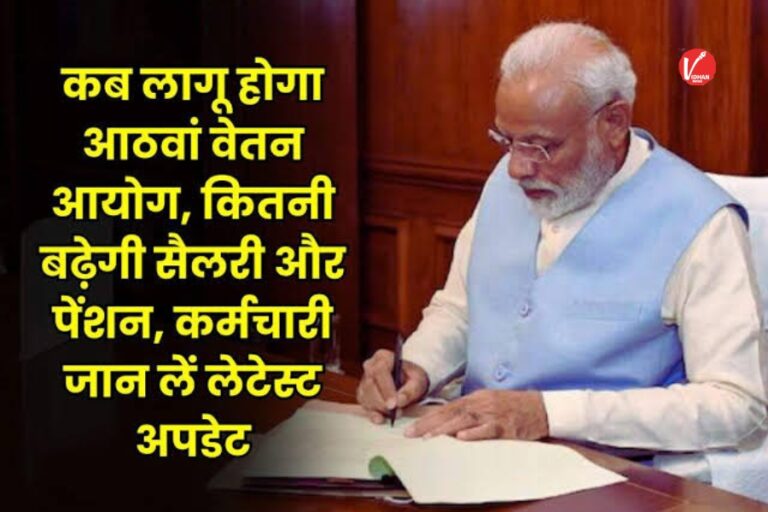 कब लागू होगा
आठवां वेतन
आयोग, कितनी
बढ़ेगी सैलरी और
पेंशन, कर्मचारी
जान लें लेटेस्ट
अपडेट
VIDHAN
NEWS